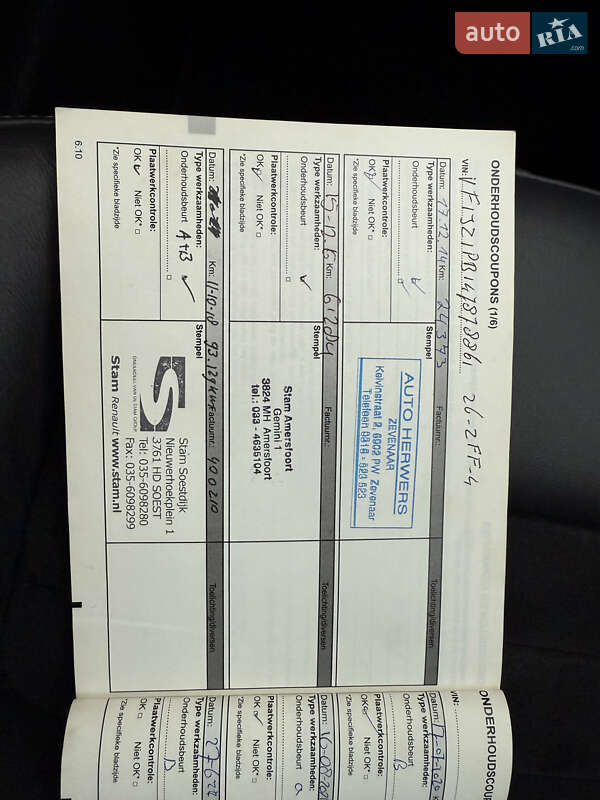 auto RIA .com
ONDERHOUDSCOUPONS (1/6)
VIN: VF1JZ1PB147878861 26-ZFF-4
Datum: 17.12.14 Km: 24.373 Factuurnr.: Toelichting/diversen
Type werkzaamheden: Stempel
Onderhoudsbeurt
Plaatwerkcontrole:
OK Niet OK*
*Zie specifieke bladzijde
AUTO HERWERS
ZEVENAAR
Kelvinstraat 2, 6902 PW Zevenaar
Telefoon 0316 - 523 523
Datum: Km: Factuurnr.: Toelichting/diversen
Type werkzaamheden: Stempel
Onderhoudsbeurt
Plaatwerkcontrole:
OK Niet OK*
*Zie specifieke bladzijde
Stam Amersfoort
Gemini 1
3824 MH Amersfoort
tel.: 033 - 4635104
Datum: Km: 11-10-18 93.129km Factuurnr.: 400210 Toelichting/diversen
Type werkzaamheden: Stempel
Onderhoudsbeurt A+B
Plaatwerkcontrole:
OK Niet OK*
*Zie specifieke bladzijde
Stam Soestdijk
Nieuwerhoekplein 1
3761 HD SOEST
Tel: 035-6098280
Fax: 035-6098299
Stam Renault www.stam.nl
6.10
ONDERHOUDSCOUP
VIN:
Datum: 17-07-2020
Type werkzaamheden:
Onderhoudsbeurt B
Plaatwerkcontrole:
OK Niet OK*
*Zie specifieke bladzijde
Datum:
Type werkzaamheden:
Onderhoudsbeurt
Plaatwerkcontrole:
OK Niet OK*
*Zie specifieke bladzijde
Datum:
Type werkzaamheden:
Onderhoudsbeurt
Plaatwerkcontrole:
OK Niet OK*
*Zie specifieke bladzijde